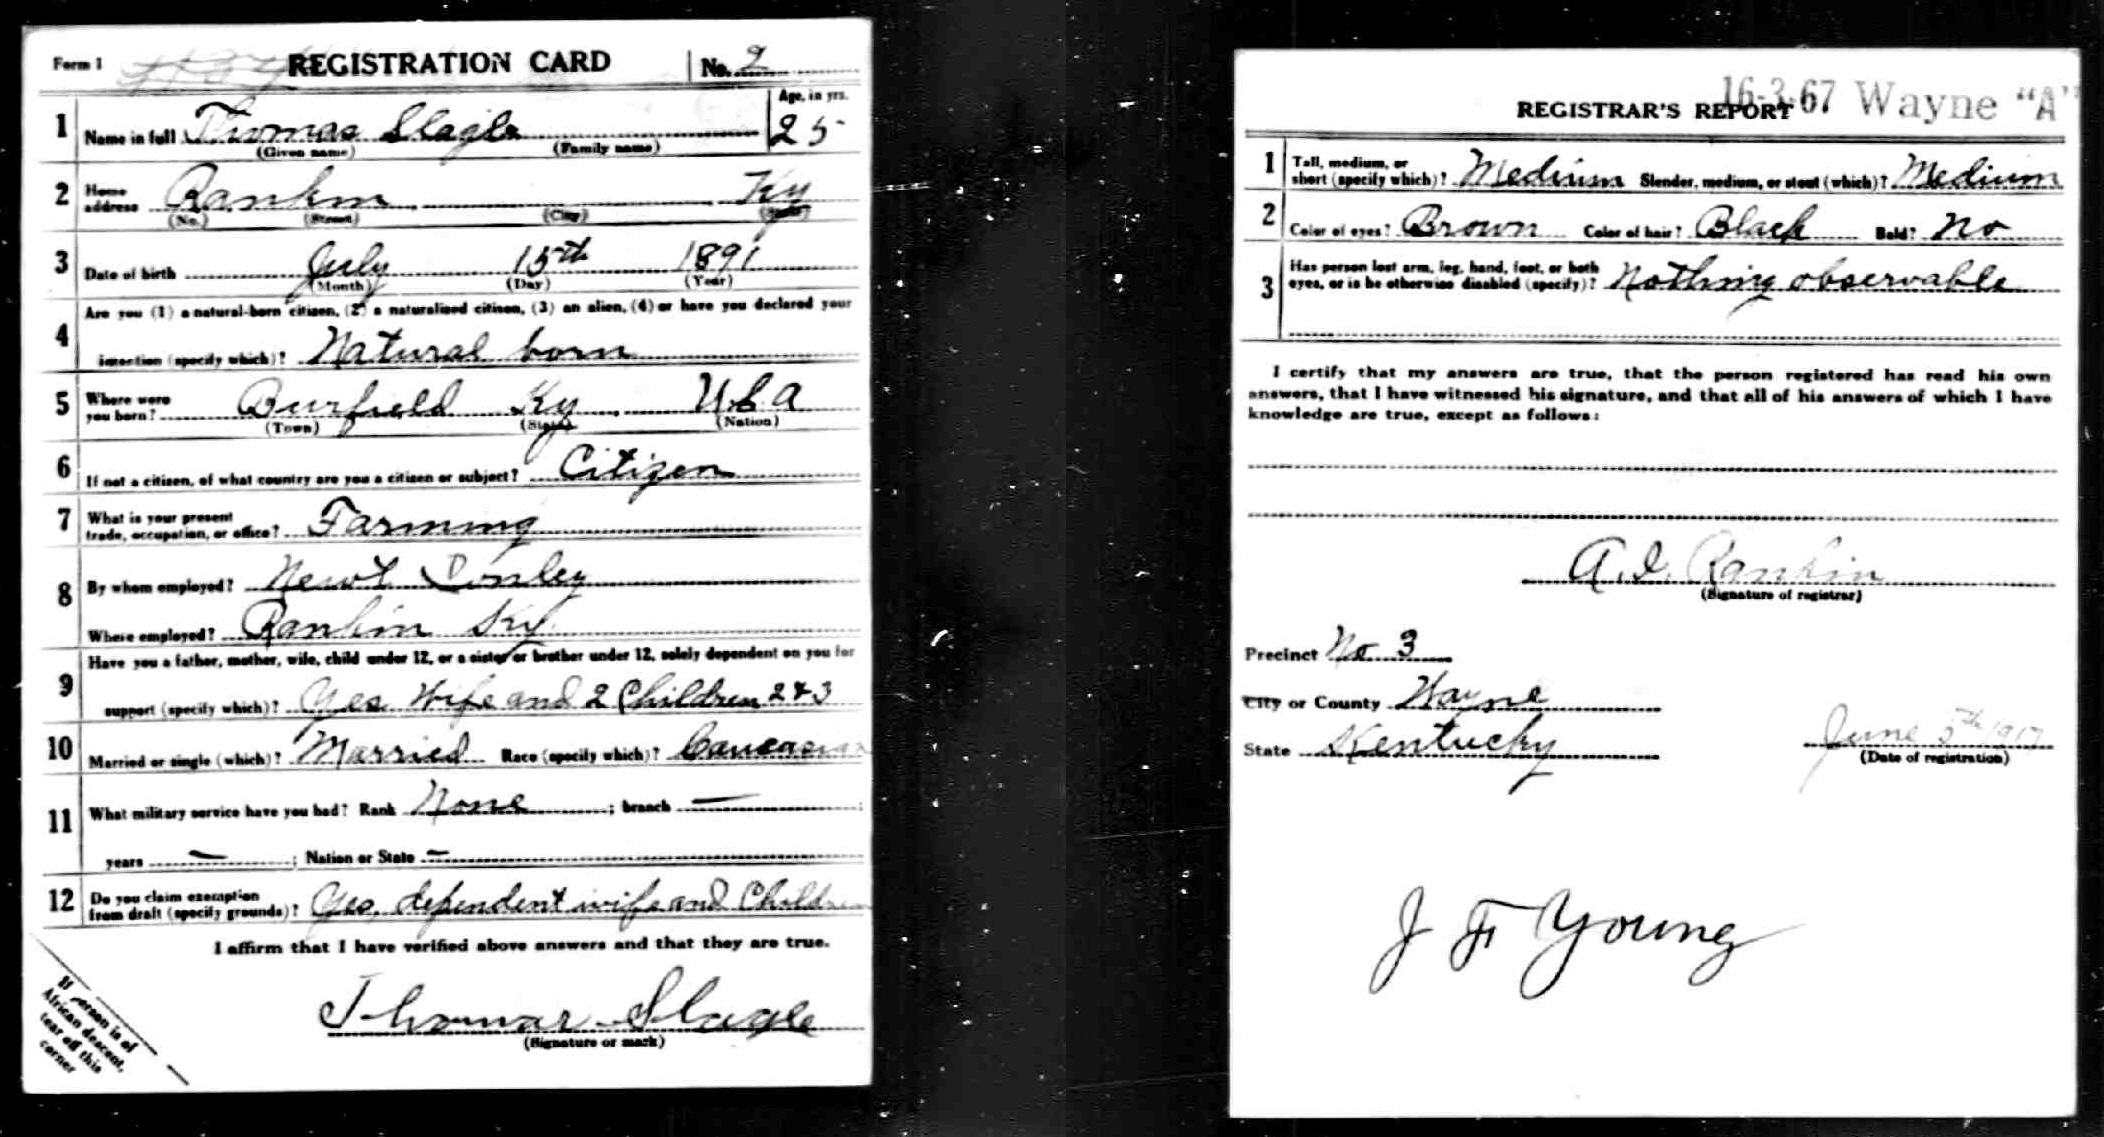 Form 1 REGISTRATION CARD No. 2
1 Name in full Thomas Slagle Age, in yrs. 25
(Given name) (Family name)
2 Home address Rankin Ky
(No.) (Street) (City) (State)
3 Date of birth July 15th 1891
(Month) (Day) (Year)
4 Are you (1) a natural-born citizen, (2) a naturalized citizen, (3) an alien, (4) or have you declared your
intention (specify which)? Natural born
5 Where were you born? Burfield Ky, U.S.A
(Town) (State) (Nation)
6 If not a citizen, of what country are you a citizen or subject? Citizen
7 What is your present trade, occupation, or office? Farming
8 By whom employed? Newt
Where employed? Rankin Ky.
9 Have you a father, mother, wife, child under 12, or a sister or brother under 12, solely dependent on you for
support (specify which)? Yes. Wife and 2 Children 2 & 3
10 Married or single (which)? Married Race (specify which)? Caucasian
11 What military service have you had? Rank None ; branch — ;
years — ; Nation or State —
12 Do you claim exemption from draft (specify grounds)? Yes, dependent wife and Children
I affirm that I have verified above answers and that they are true.
Thomas Slagle
(Signature or mark)
If person is of
African descent,
tear off this
corner
16-3-67 Wayne "A"
REGISTRAR'S REPORT
1 Tall, medium, or short (specify which)? Medium Slender, medium, or stout (which)? Medium
2 Color of eyes? Brown Color of hair? Black Bald? No
3 Has person lost arm, leg, hand, foot, or both
eyes, or is he otherwise disabled (specify)? Nothing observable
I certify that my answers are true, that the person registered has read his own
answers, that I have witnessed his signature, and that all of his answers of which I have
knowledge are true, except as follows:
A. I. Rankin
(Signature of registrar)
Precinct No 3
City or County Wayne
State Kentucky
June 5th 1917
(Date of registration)
J F Young